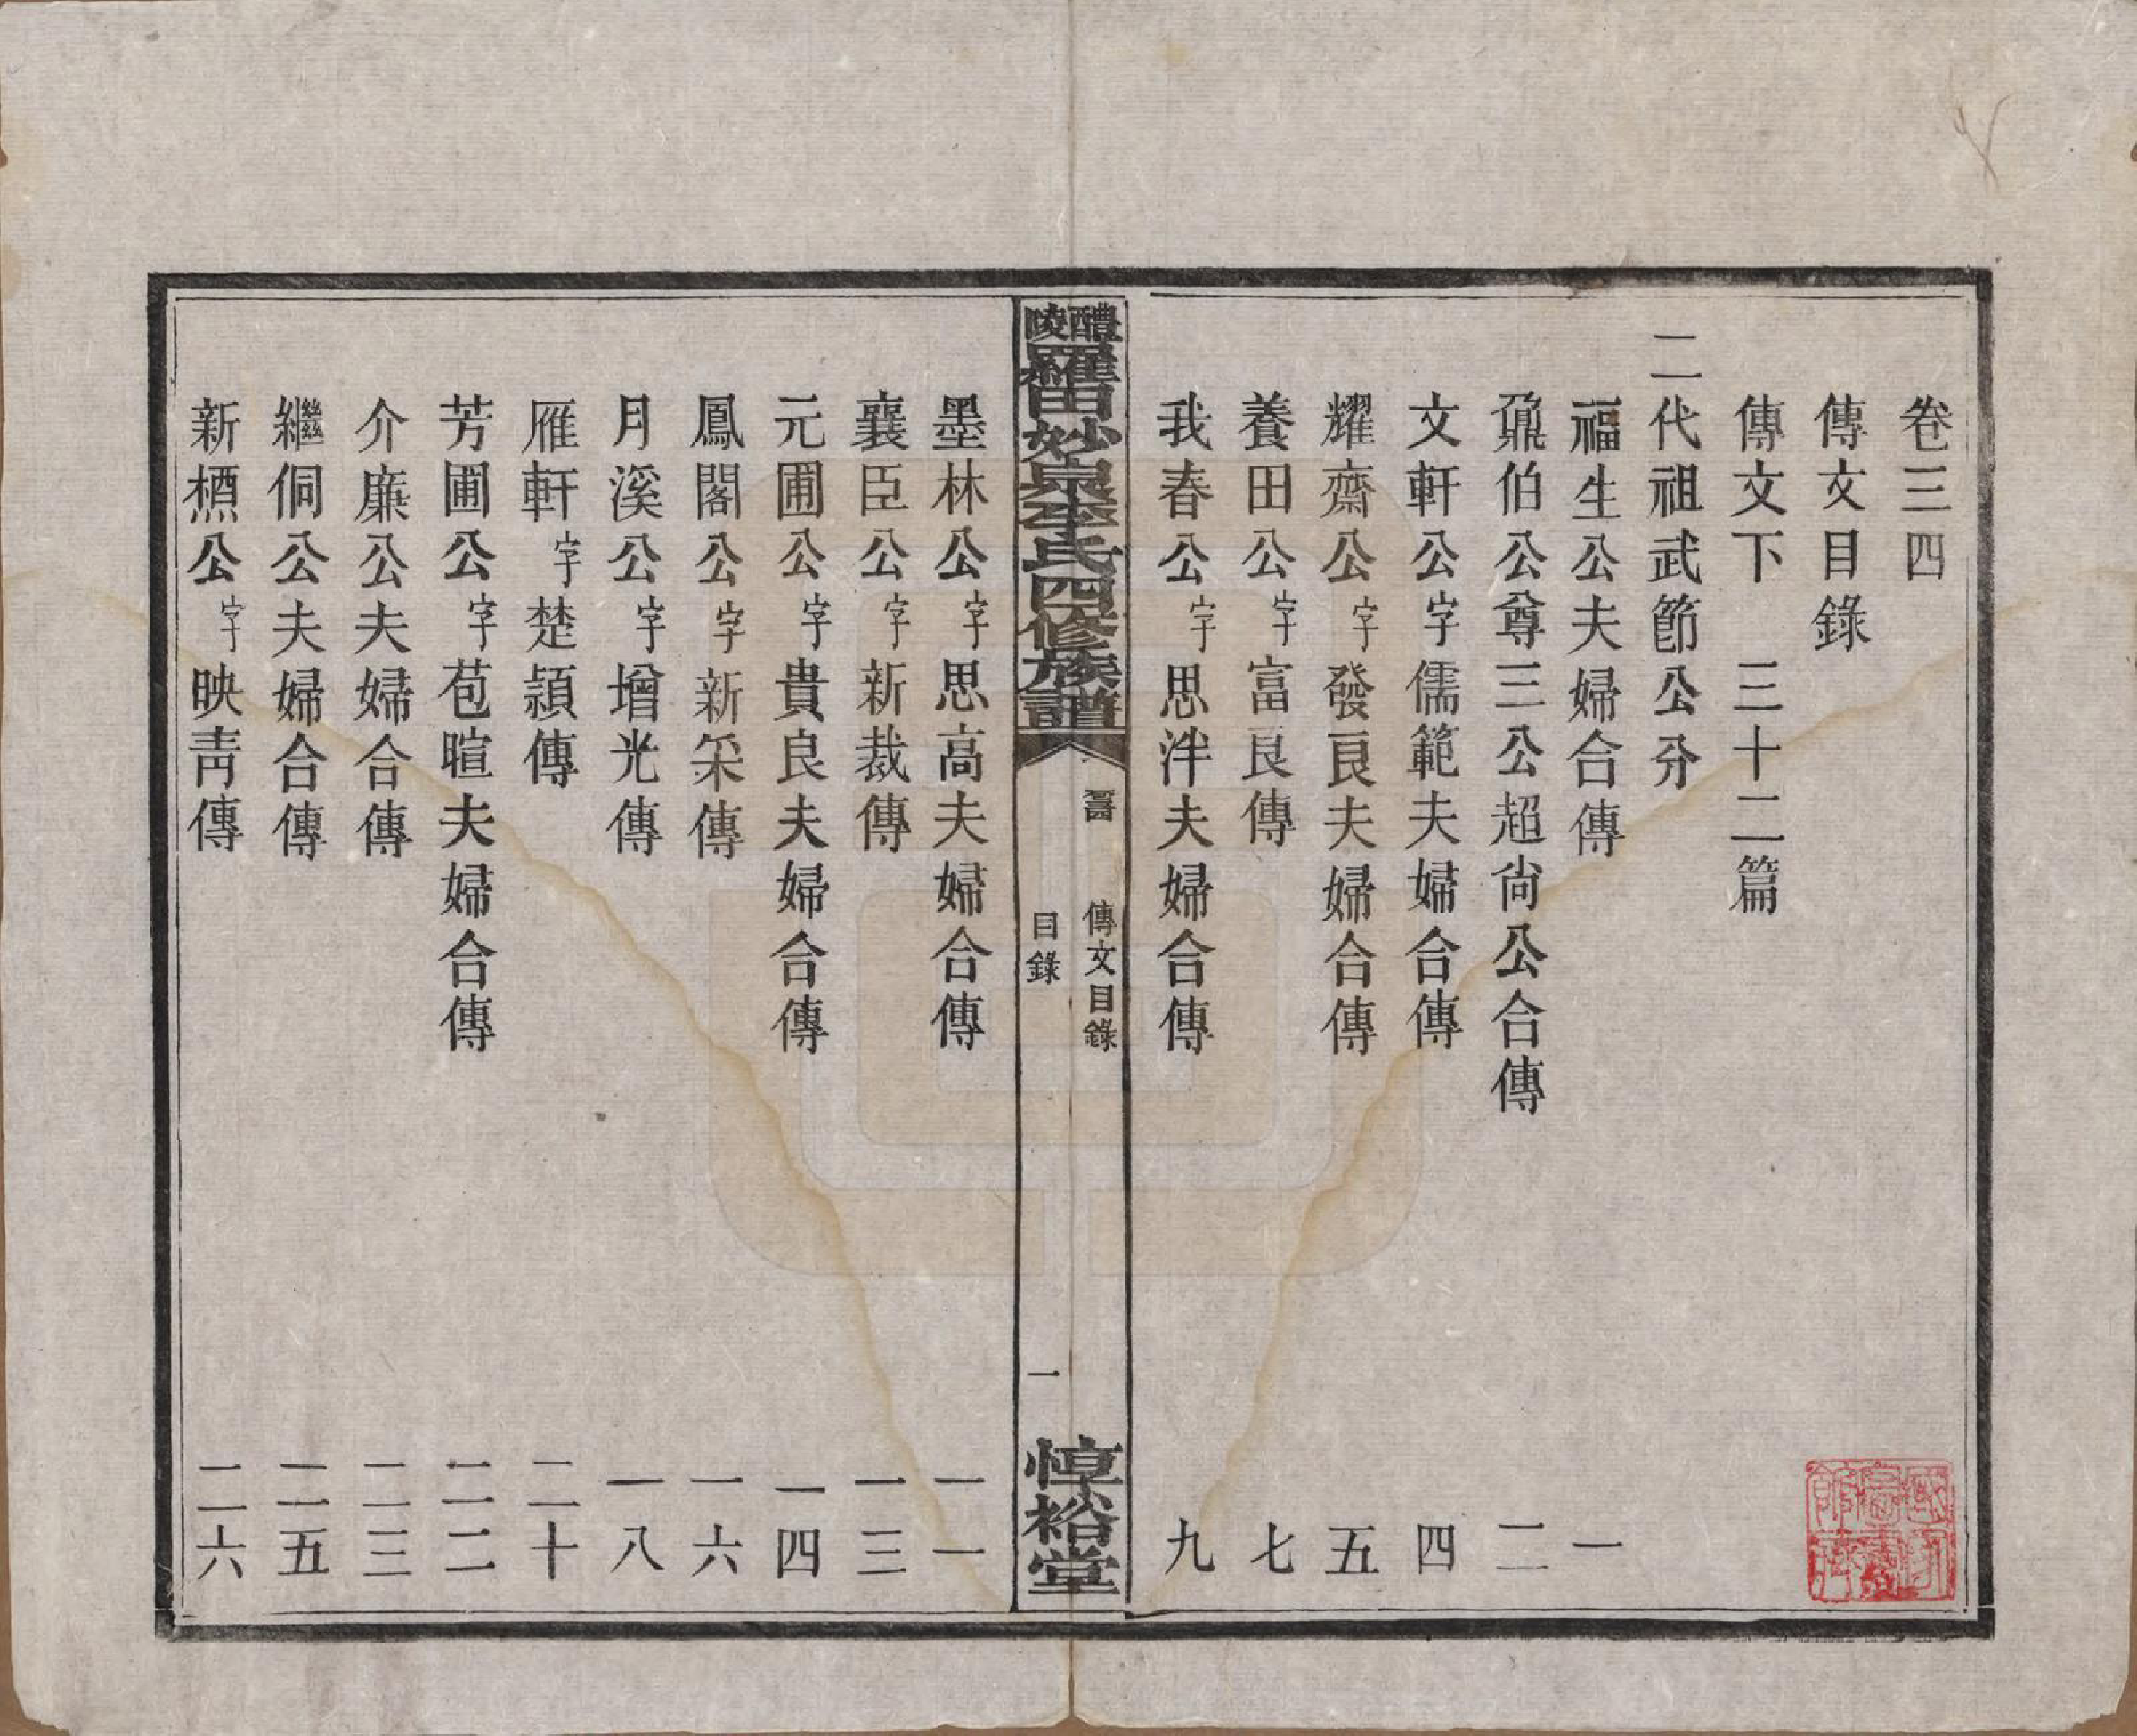 卷三四
傳文目錄
傳文下　三十二篇
二代祖武節公分
福生公夫婦合傳　一
鼐伯公尊三公超尚公合傳　二
文軒公字儒範夫婦合傳　四
耀齋公字發良夫婦合傳　五
養田公字富良傳　七
我春公字思泮夫婦合傳　九
醴陵羅田妙泉李氏四修族譜
傳文目錄
目錄
一
惇裕堂
墨林公字思高夫婦合傳　一一
襄臣公字新裁傳　一三
元圃公字貴良夫婦合傳　一四
鳳閣公字新采傳　一六
月溪公字增光傳　一八
雁軒字楚潁傳　二十
芳圃公字苞暄夫婦合傳　二二
介廉公夫婦合傳　二三
繼侗公夫婦合傳　二五
新槱公字映青傳　二六